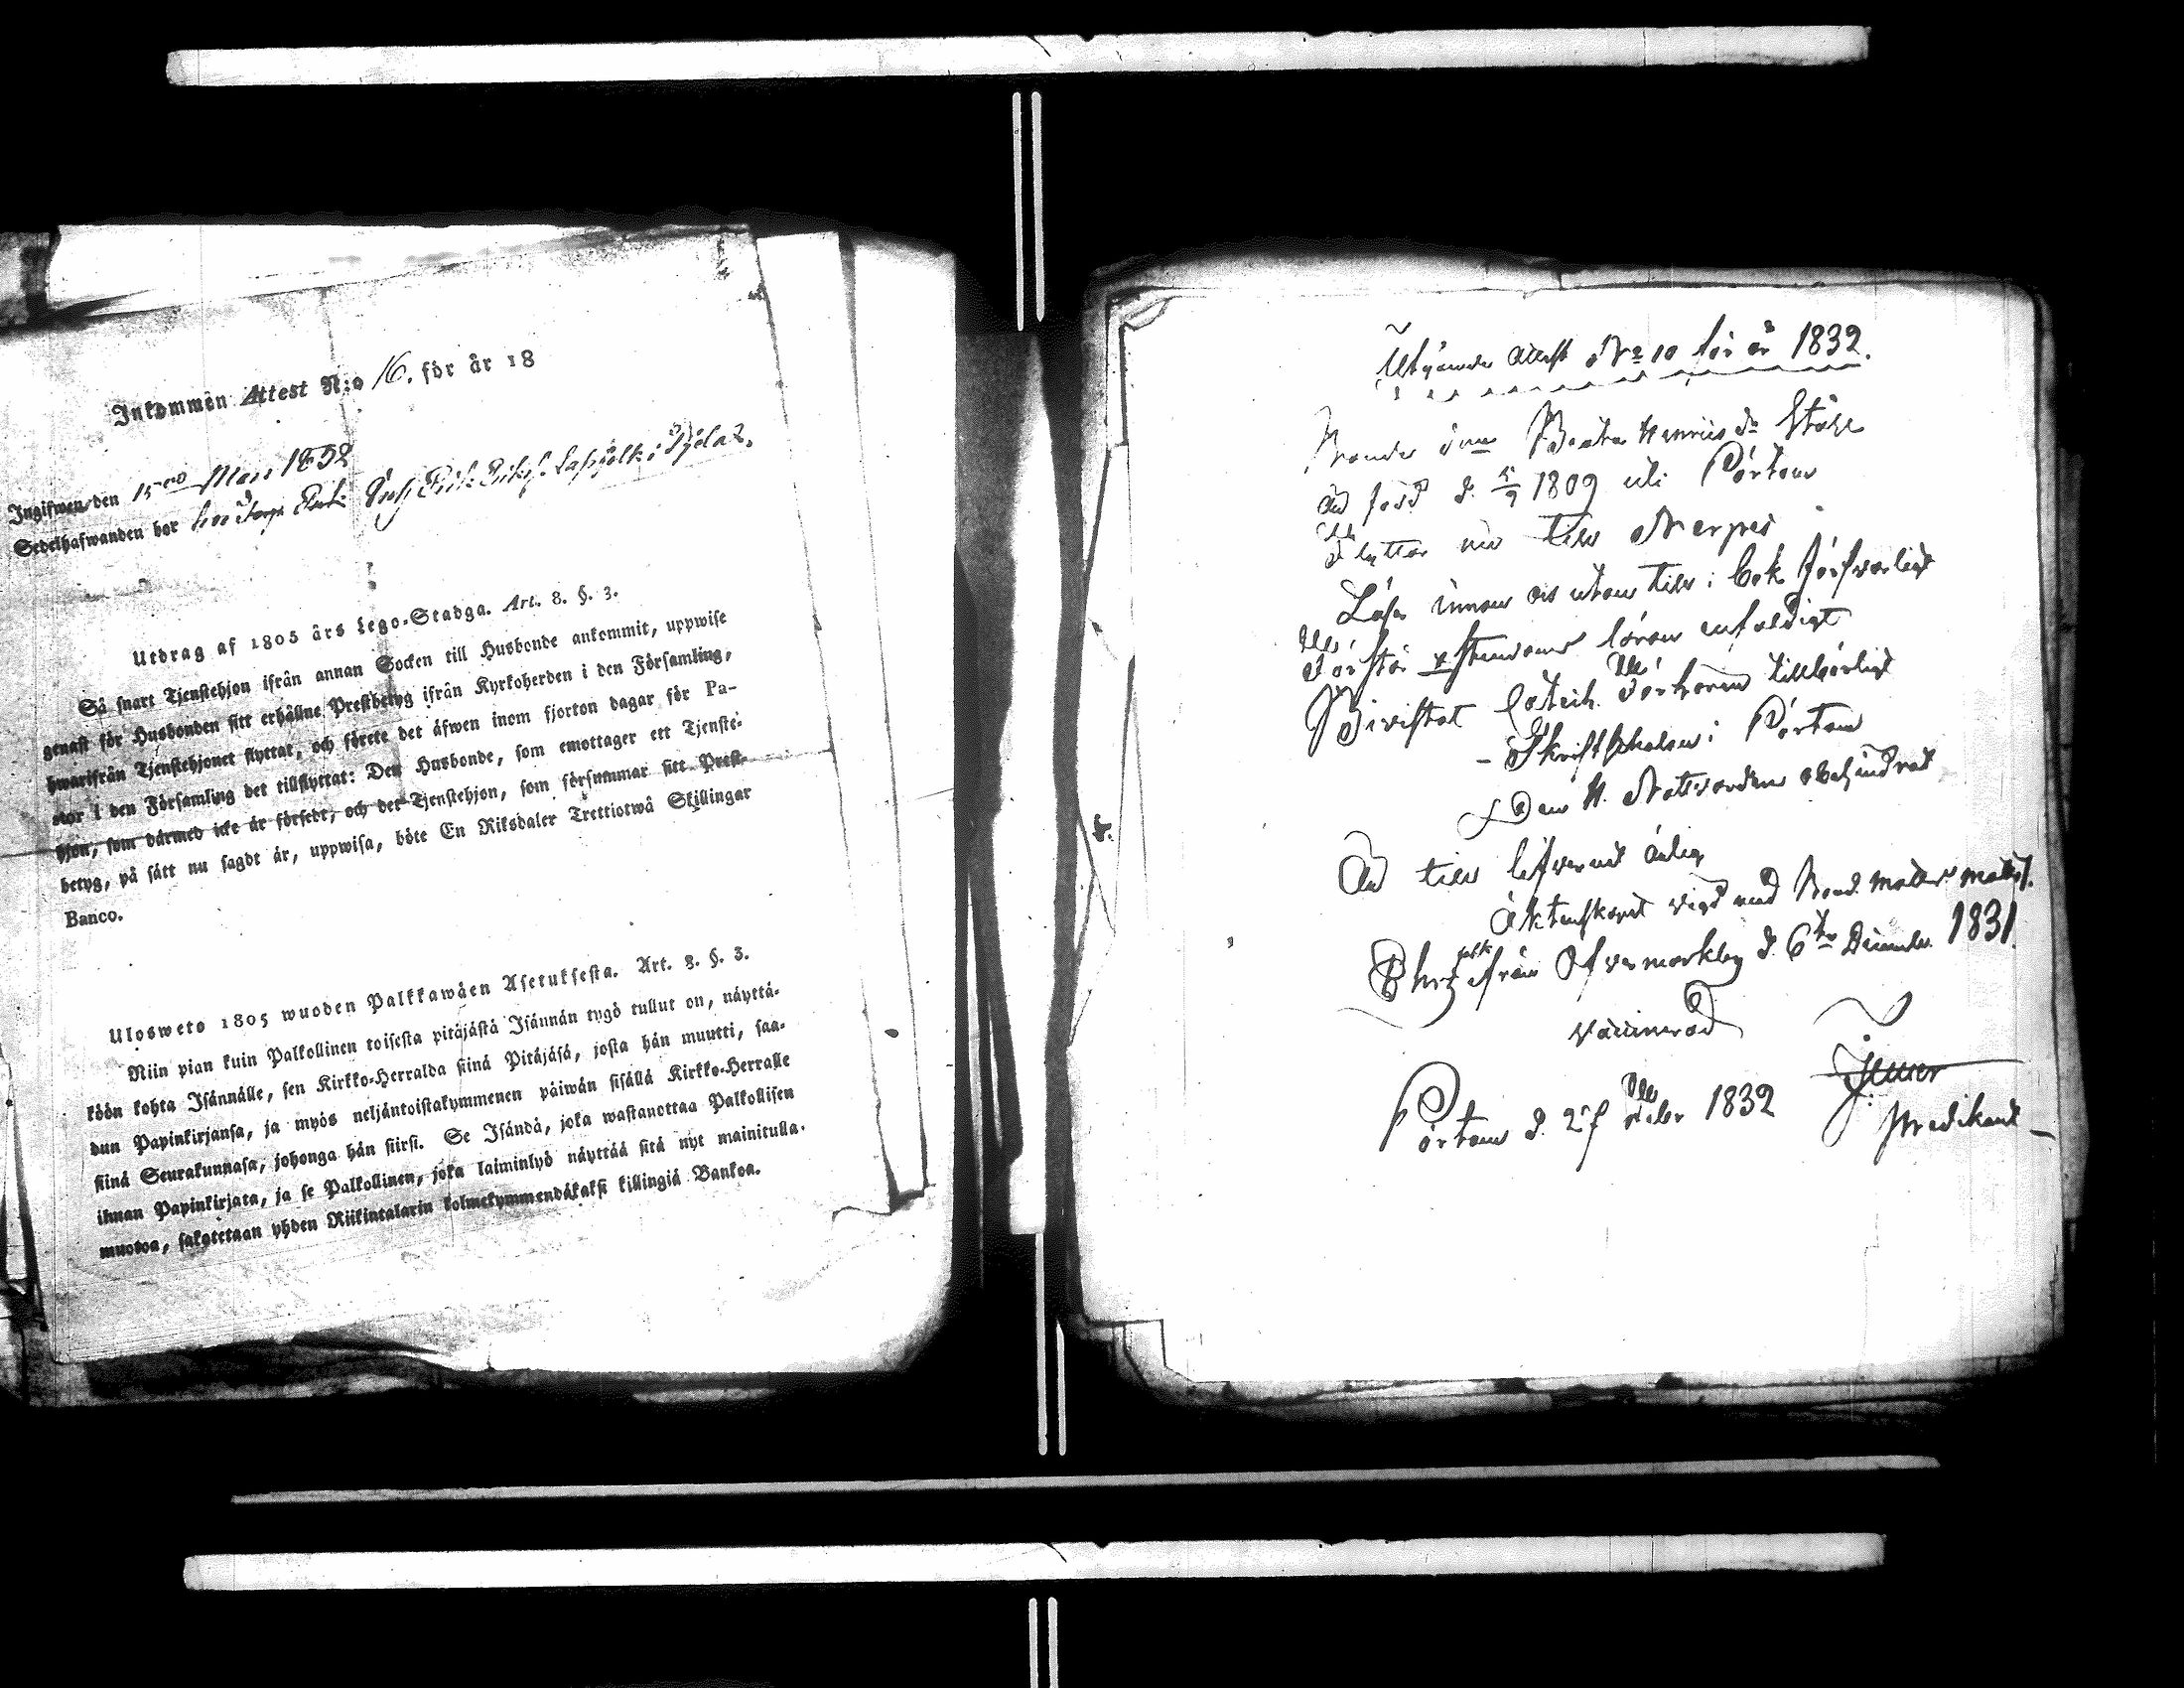 Inkommen Attest N:o 16. för år 18
Ingifwen den 15 Mars 1832
Sedelhafwanden bor hos Erik i
Utdrag af 1805 års Lego-Stadga. Art. 8. §. 3.
Så snart Tjenstehjon ifrån annan Socken till Husbonde ankommit, uppwise
genast för Husbonden sitt erhållne Prestbetyg ifrån Kyrkoherden i den Församling,
hwarifrån Tjenstehjonet flyttat, och förete det äfwen inom fjorton dagar för Pa-
stor i den Församling det tillflyttat: Den Husbonde, som emottager ett Tjenste-
hjon, som därmed icke är försedt, och det Tjenstehjon, som försummar sitt Prest-
betyg, på sätt nu sagdt är, uppwisa, böte En Riksdaler Trettiotwå Skillingar
Banco.
Ulosweto 1805 wuoden Palkkawäen Asetuksesta. Art. 8. §. 3.
Niin pian kuin Palkollinen toisesta pitäjästä Isännän tygö tullut on, näyttä-
köön kohta Isännälle, sen Kirkko-Herralda siinä Pitäjäsä, josta hän muutti, saa-
dun Papinkirjansa, ja myös neljäntoistakymmenen päiwän sisällä Kirkko-Herralle
siinä Seurakunnasa, johonga hän siirsi. Se Isändä, joka wastanottaa Palkollisen
ilman Papinkirjata, ja se Palkollinen, joka laiminlyö näyttää sitä nyt mainitulla.
muotoa, sakotetaan yhden Riikintalarin kolmekymmendäkaksi killingiä Bankoa.
Utgående Attest No 10 för år 1832.
Beata Henriksdr
född d. 5/9 1809 uti Pörtom
flyttar nu till Nerpes
Läser innan och utan till i bok försvarligt
Förstår Christendoms läran enfaldigt
Bevistat Catech. Förhören tillbörligt
Skriftskolan i Pörtom
Den H. Nattvarden obehindrat
till lefvernet ärlig
Äktenskapet vigd med
ifrån Öfvermarkby d. 6te December 1831.
Pörtom d. 27 1832
Predikant